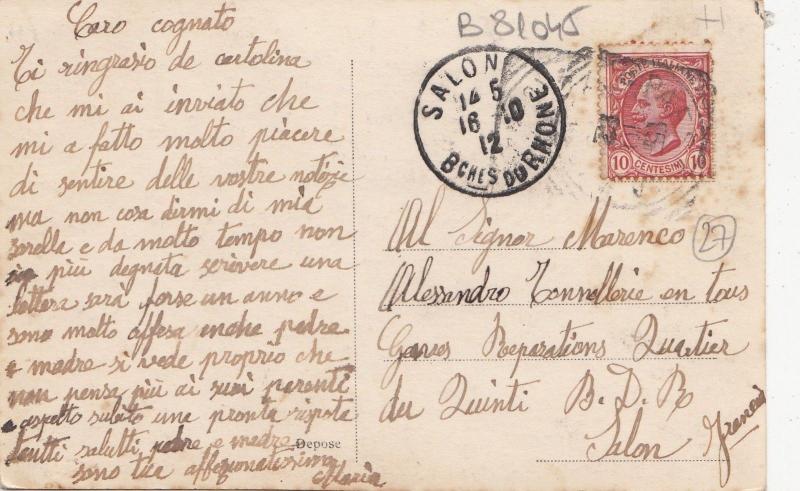 Caro cognato
Ti ringrasio de cartolina
che mi ai inviato che
mi a fatto molto piacere
di sentire delle vostre notizie
ma non cosa dirmi di mia
sorella e da molto tempo non
più degnata scrivere una
lettera sarà forse un anno e
sono molto affesa enche padre
e madre si vede proprio che
non pensa più ai suoi parenti
e aspetto subito una pronta risposta
tantti salutti padre e madre
sono tua affezionatissima
Maria
Depose
B 81045
H
SALON
14 5
16 10
12
BCHES DU RHONE
POSTE ITALIANE
10 CENTESIMI 10
27
Al Signor Marenco
Alessandro Tonnellerie en tous
Genres Reparations Quartier
du Quinti B.D.R
Salon Francia